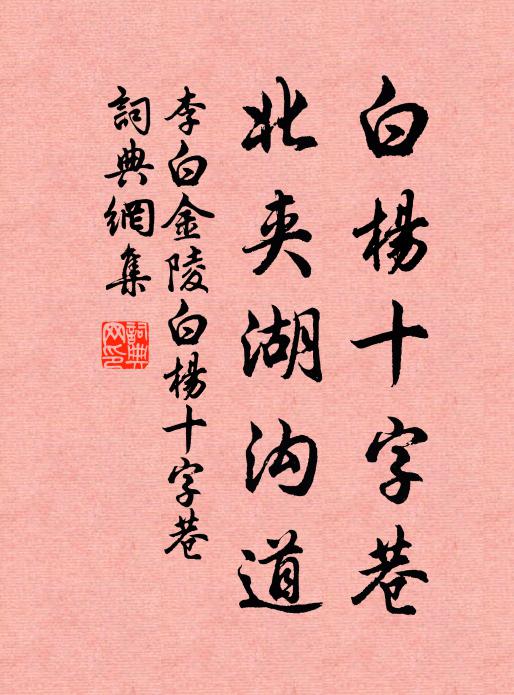 白楊十字巷
北夾湖沟道
李白金陵白楊十字巷
詞典網集
詞典
网印